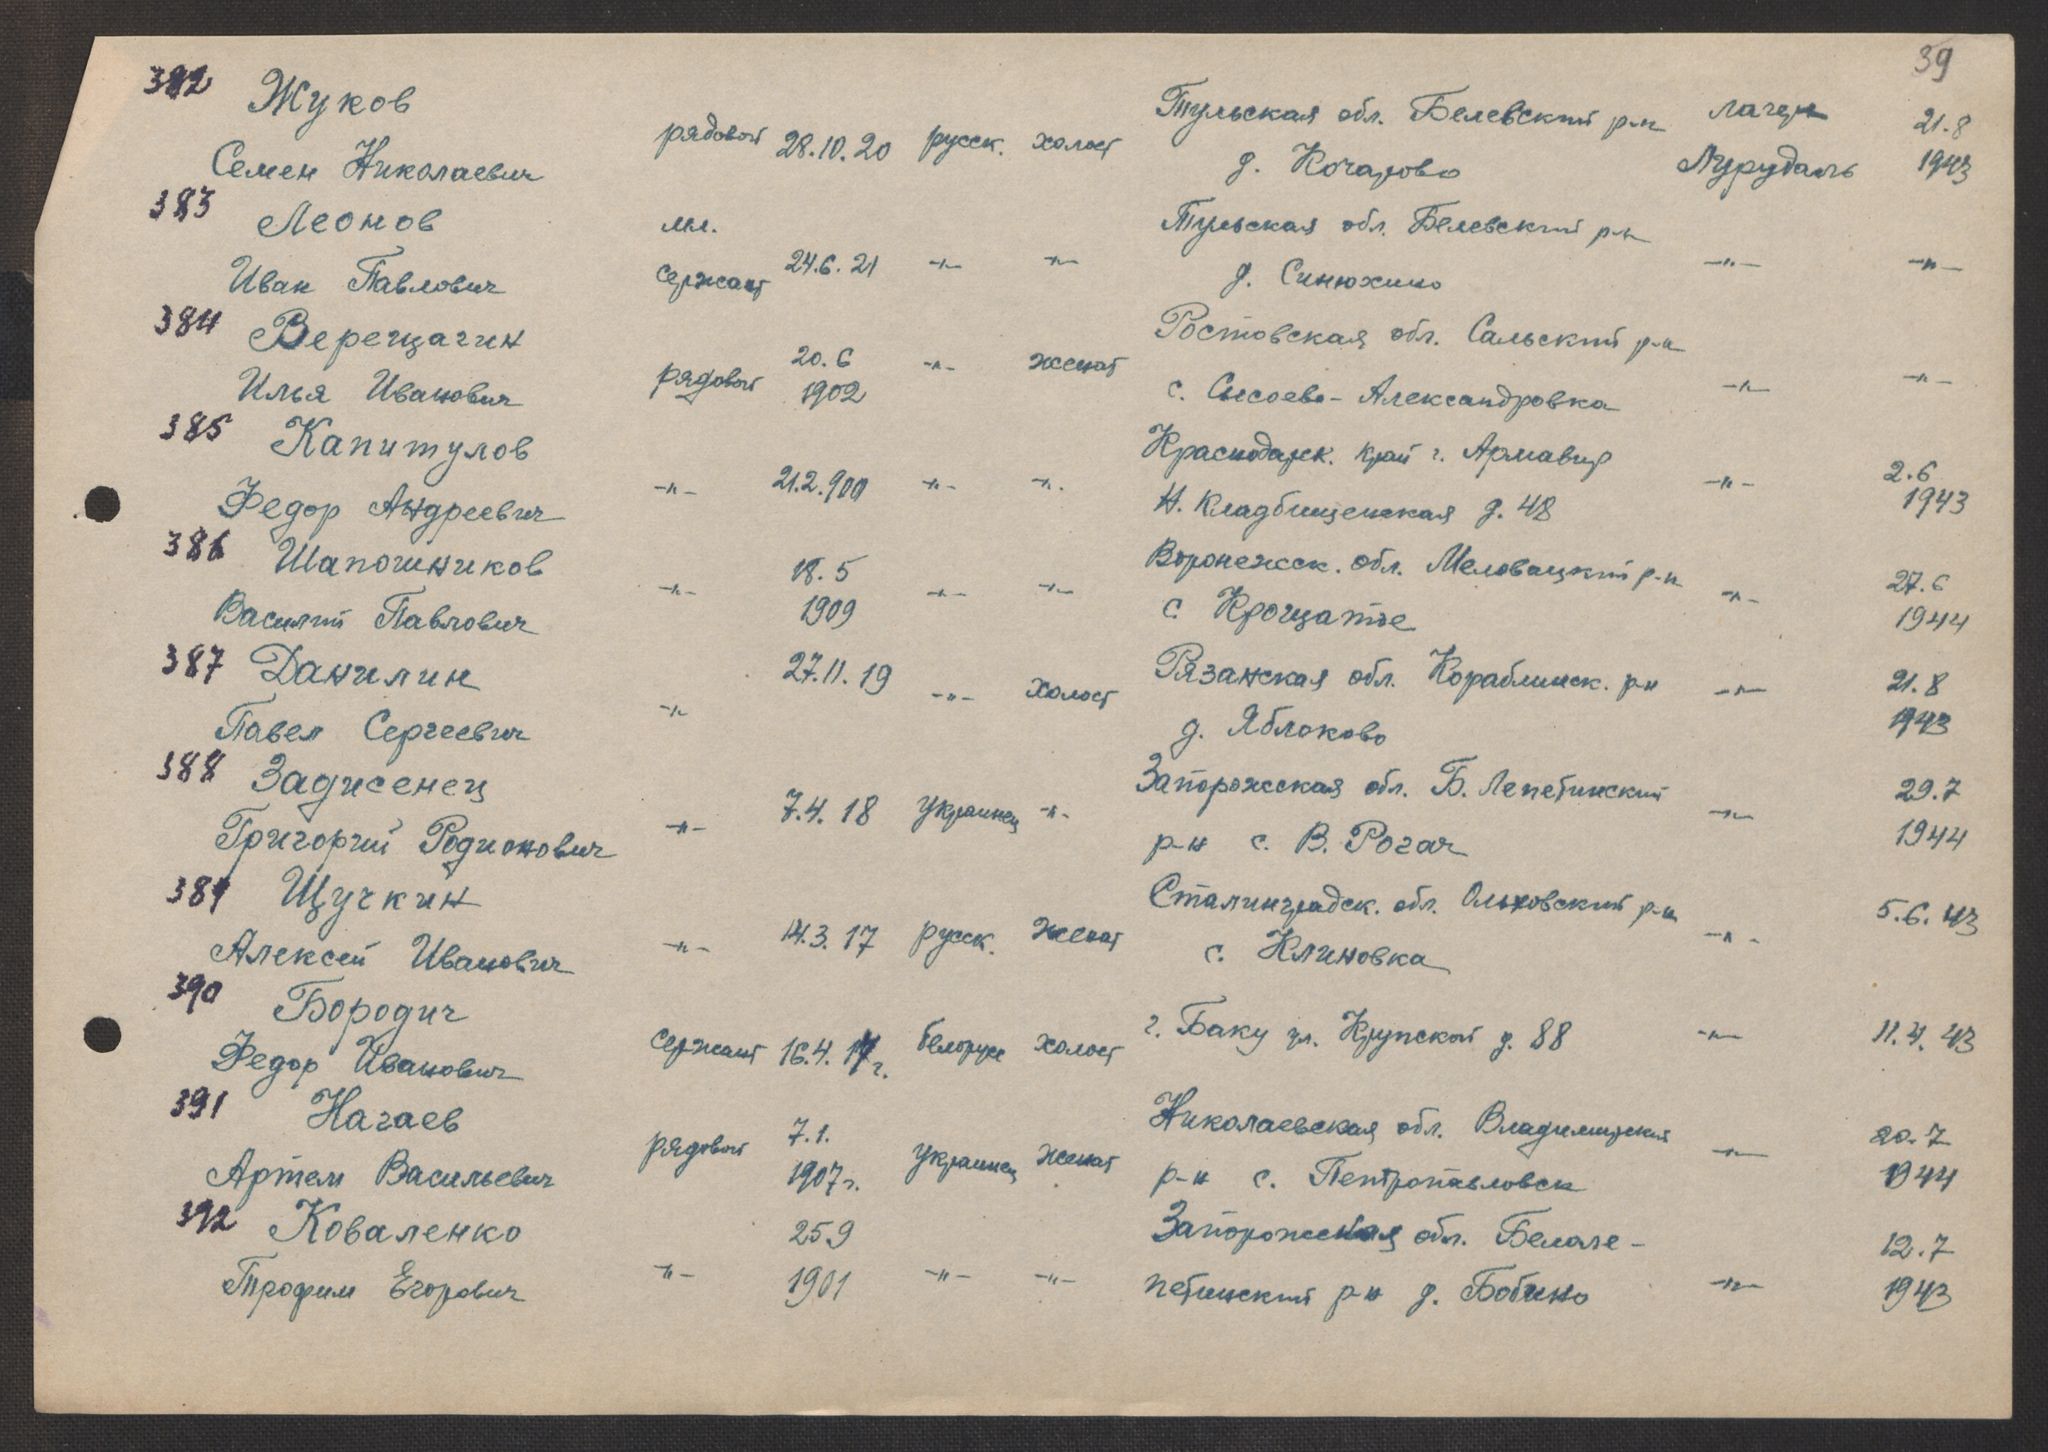 39
382 Жуков
Семен Николаевич
рядовой 28.10.20 русск. холост
Тульская обл. Белевский р-н
д. Кочарово
лагерь
Лурудаль
21.8
1943
383 Леонов
Иван Павлович
мл.
сержант
24.6.21 -"- -"-
Тульская обл. Белевский р-н
д. Синюхино
-"- -"-
384 Верещагин
Илья Иванович
рядовой
20.6
1902
-"- женат
Ростовская обл. Сальский р-н
с. Сысоево-Александровка
-"- -"-
385 Капитулов
Федор Андреевич
-"- 21.2.900 -"- -"-
Краснодарск. край г. Армавир
Н. Кладбищенская д. 48
-"-
2.6
1943
386 Шапошников
Василий Павлович
-"-
18.5
1909
-"- -"-
Воронежск. обл. Меловацкий р-н
с. Крощатое
-"-
27.6
1944
387 Данилин
Павел Сергеевич
-"- 27.11.19 -"- холост
Рязанская обл. Кораблинск. р-н
д. Яблоково
-"-
21.8
1943
388 Задисенец
Григорий Родионович
-"- 7.4.18 украинец -"-
Запорожская обл. Б. Лепетинский
р-н с. В. Рогач
-"-
29.7
1944
389 Щучкин
Алексей Иванович
-"- 14.3.17 русск. женат
Сталинградск. обл. Ольховский р-н
с. Клиновка
-"-
5.6.43
390 Бородич
Федор Иванович
сержант 16.4.17г. белорусс холост
г. Баку ул. Крупской д. 88
-"-
11.4.43
391 Нагаев
Артем Васильевич
рядовой
7.1.
1907г.
украинец женат
Николаевская обл. Владимирский
р-н с. Пентропавловск
-"-
20.7
1944
392 Коваленко
Трофим Егорович
-"-
25.9
1901
-"- -"-
Запорожская обл. Белоле-
петинский р-н д. Бобино
-"-
12.7
1943